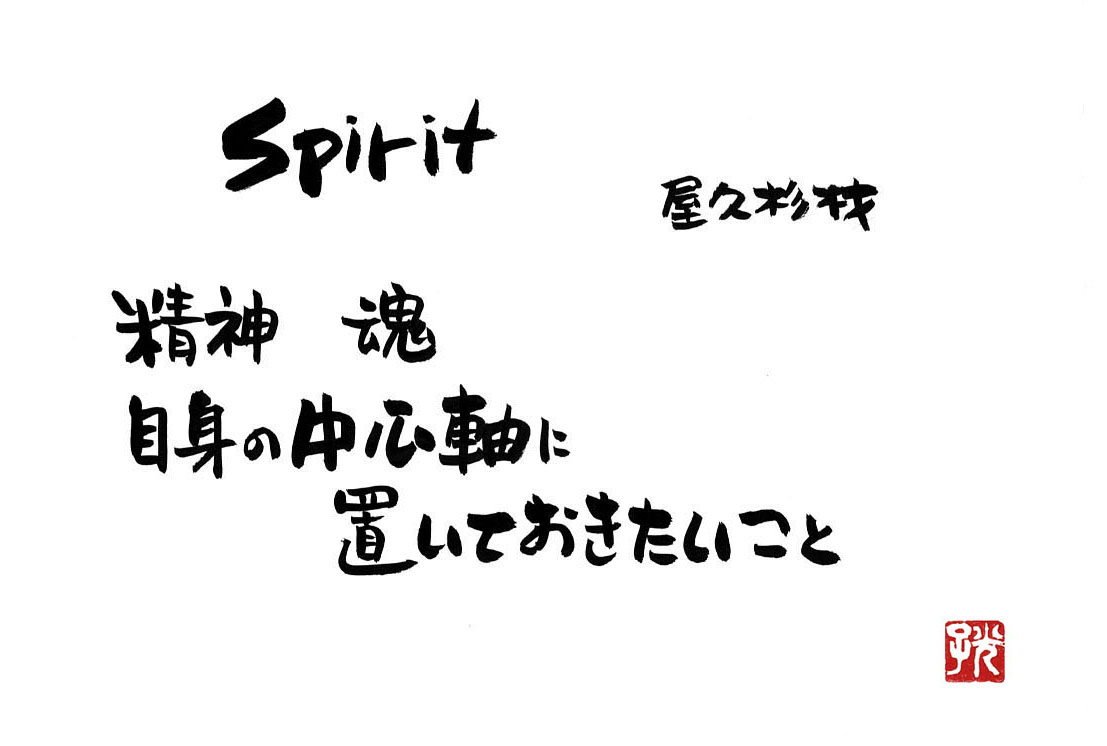 Spirit
屋久杉材
精神 魂
自身の中心軸に
置いておきたいこと